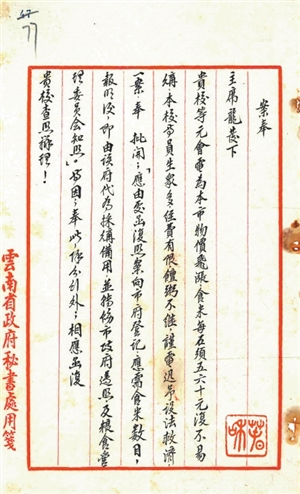 77
案奉
主席龍發下
貴校等元會電為本市物價飛漲食米每石須五六十元復不易
購本校等員生眾多經費有限饘粥不继謹電迅予設法救濟
一案奉 批開:「應由處函復照案向市府登記應需食米數目,
報明後,即由該府代為採購備用,並轉飭市政府遵照及糧食管
理委員會知照」等因;奉此,除分行外;相應函復
貴校查照辦理!
雲南省政府秘書處用箋